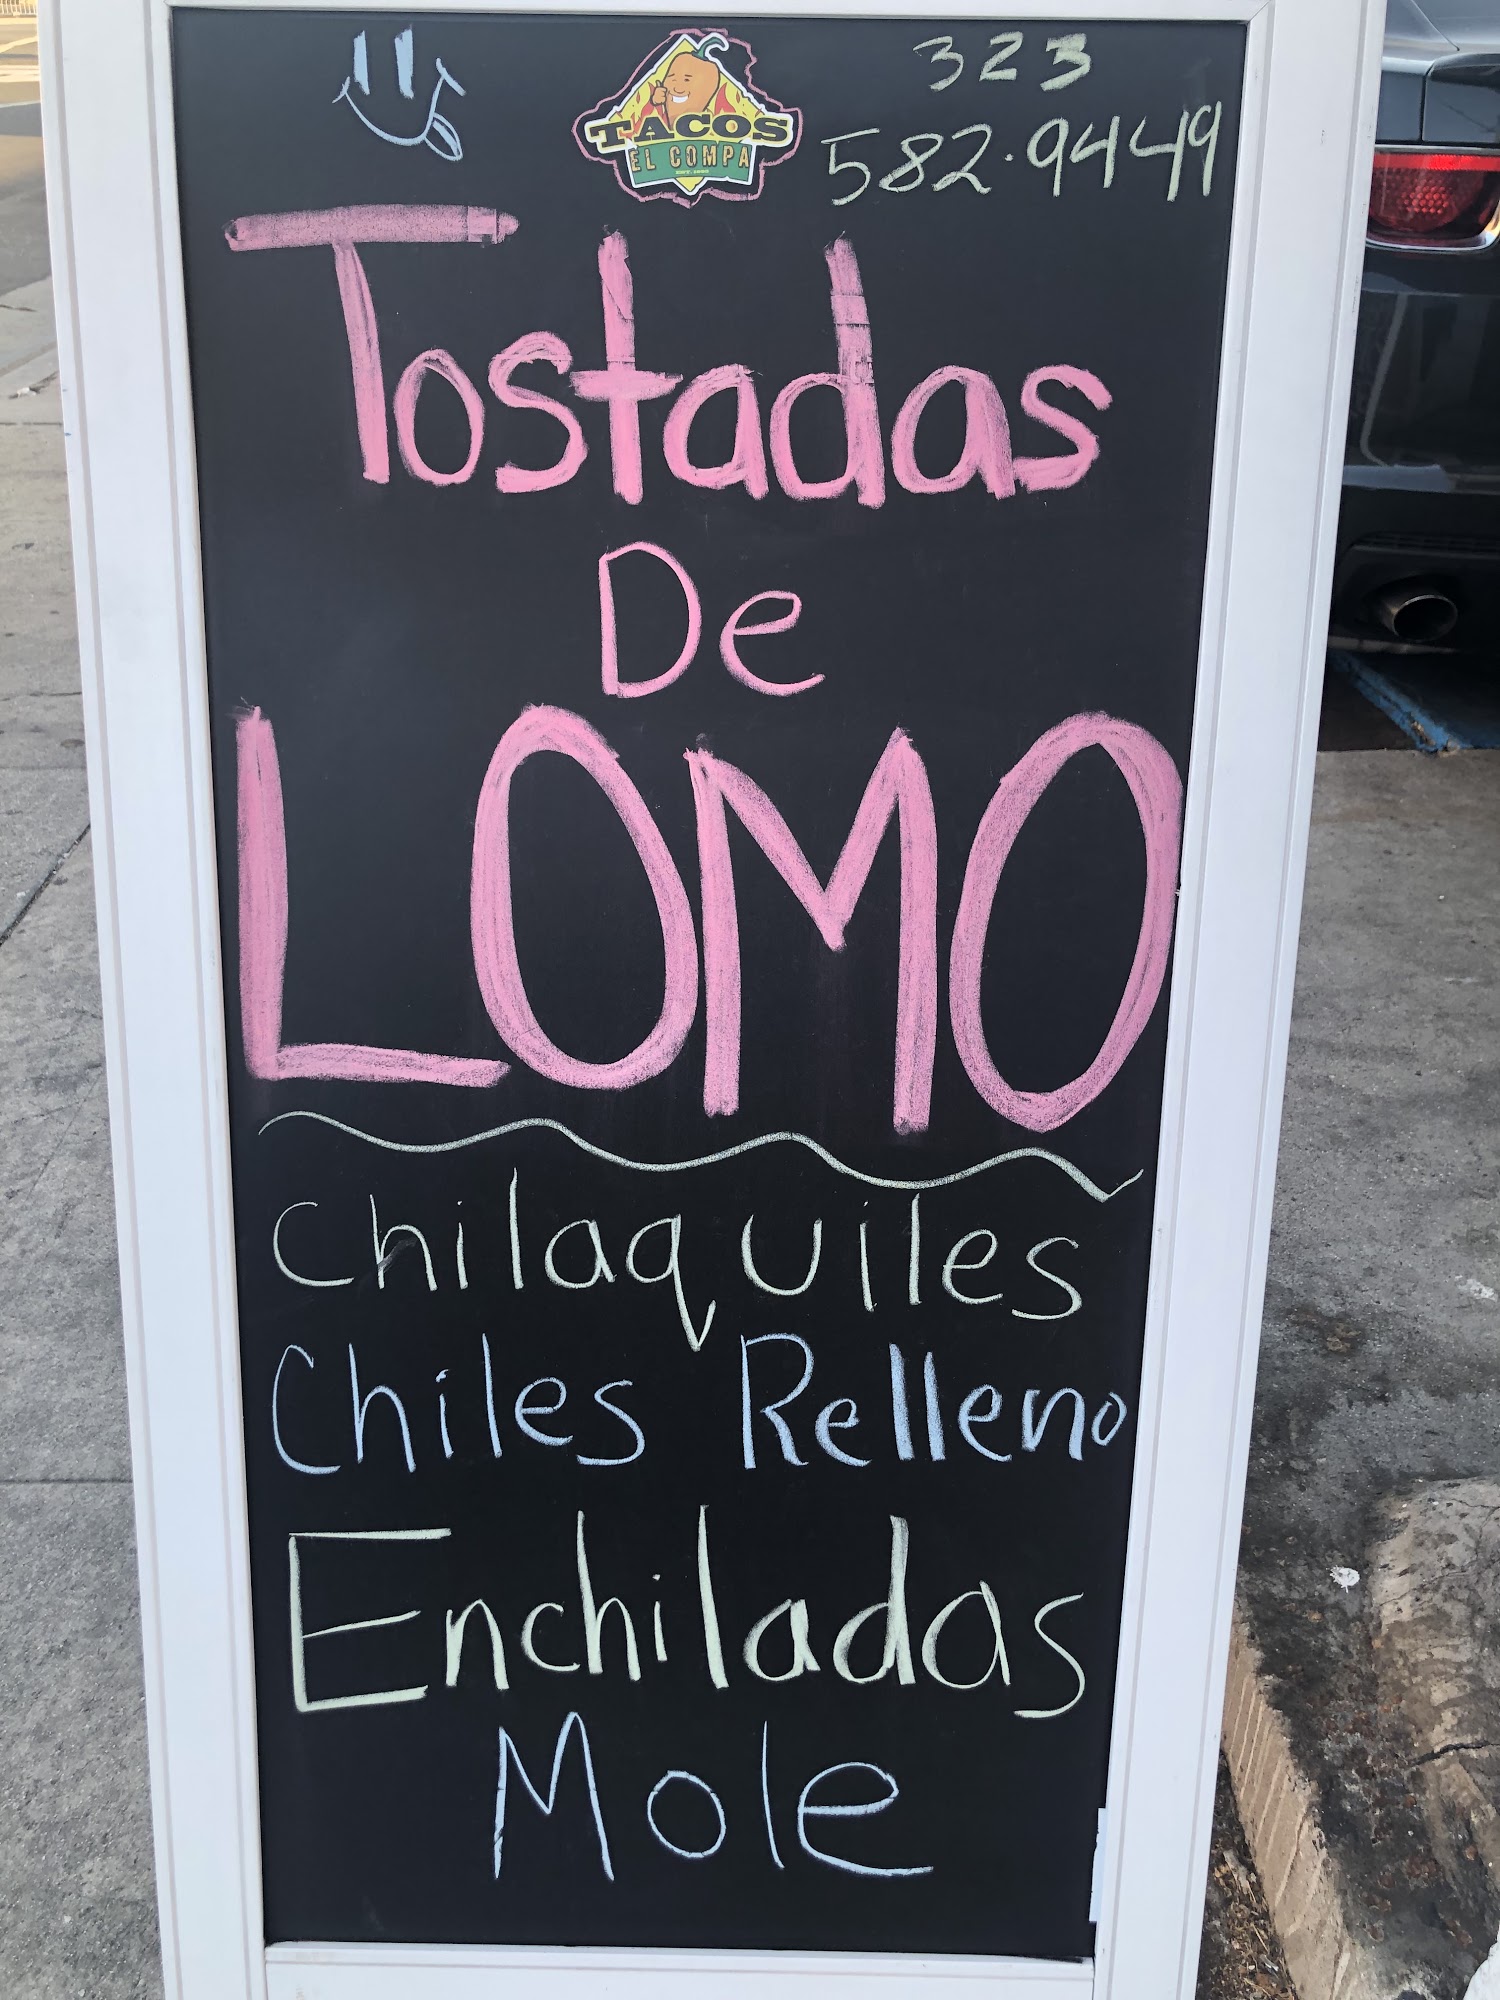 323
582.9449
TACOS
EL COMPA
Tostadas
De
LOMO
Chilaquiles
Chiles Relleno
Enchiladas
Mole